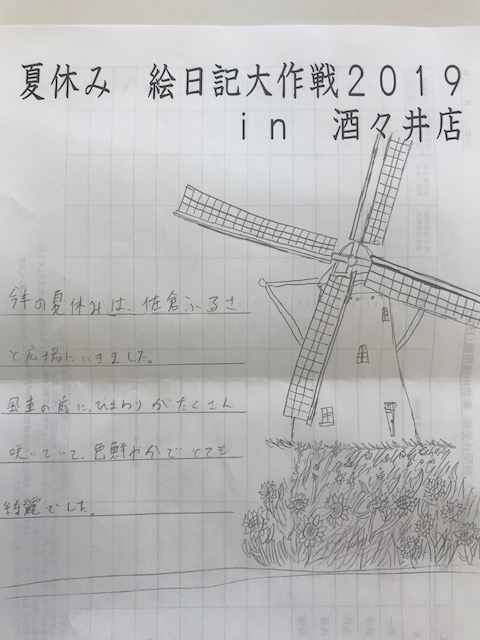 夏休み 絵日記大作戦2019
in 酒々井店
今年の夏休みは、佐倉ふるさ
と広場にいきました。
風車の前に、ひまわりがたくさん
咲いていて、色鮮やかでとても
綺麗でした。